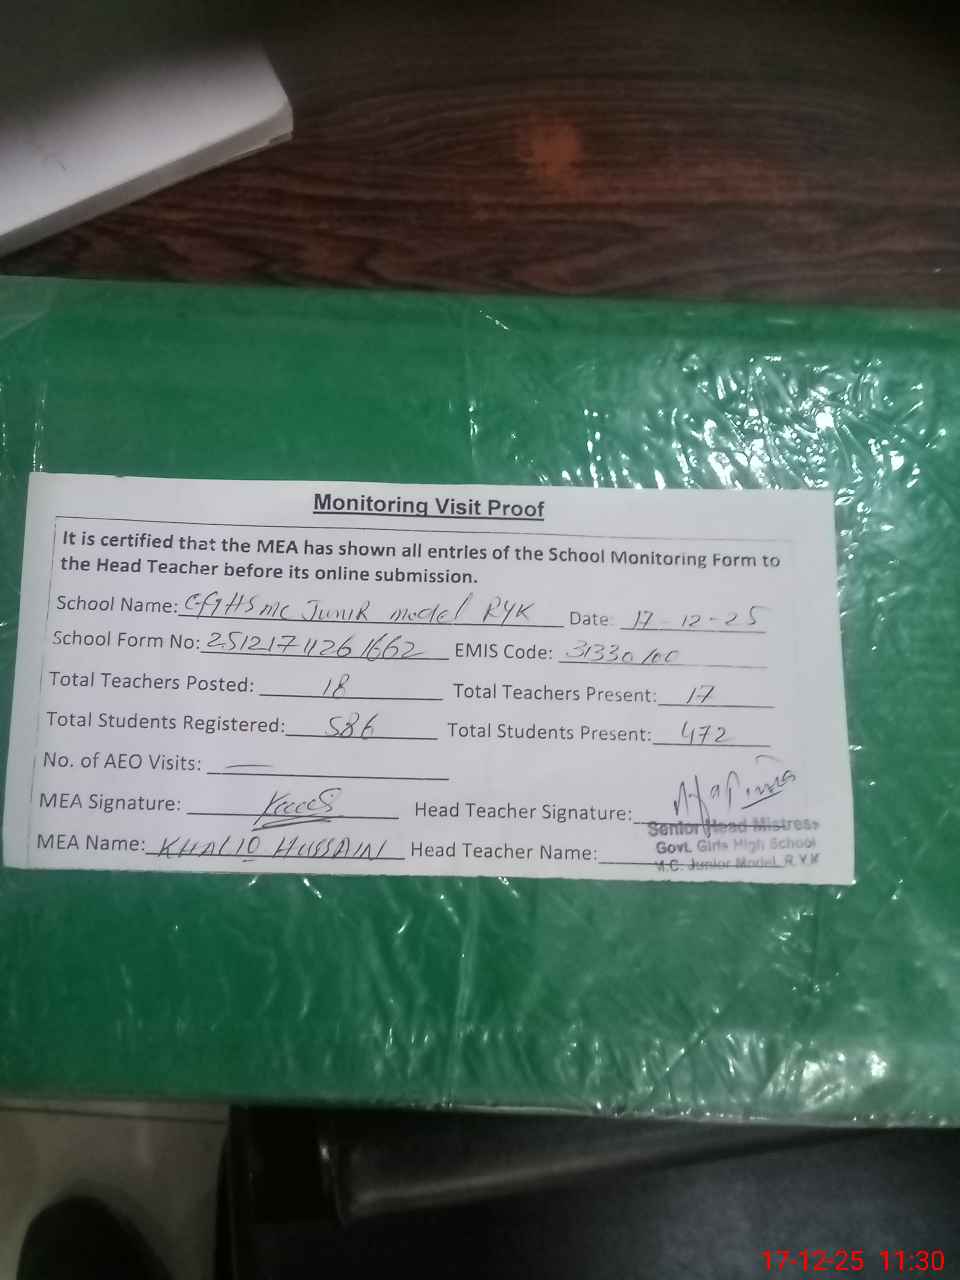 Monitoring Visit Proof
It is certified that the MEA has shown all entries of the School Monitoring Form to
the Head Teacher before its online submission.
School Name: GGHS MC Junir model RYK Date: 17-12-25
School Form No: 2512171126 1662 EMIS Code: 31330100
Total Teachers Posted: 18 Total Teachers Present: 17
Total Students Registered: 586 Total Students Present: 472
No. of AEO Visits: —
MEA Signature: Head Teacher Signature:
MEA Name: KHALID HUSSAIN Head Teacher Name:
Senior Head Mistress
Govt. Girls High School
M.C. Junior Model R.Y.K
17-12-25 11:30